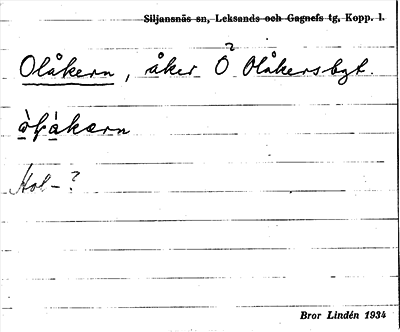 Siljansnäs sn, Leksands och Gagnefs tg, Kopp. l.
Olåkern, åker Ö? Olåkersbgt.
Hol-?
Bror Lindén 1934